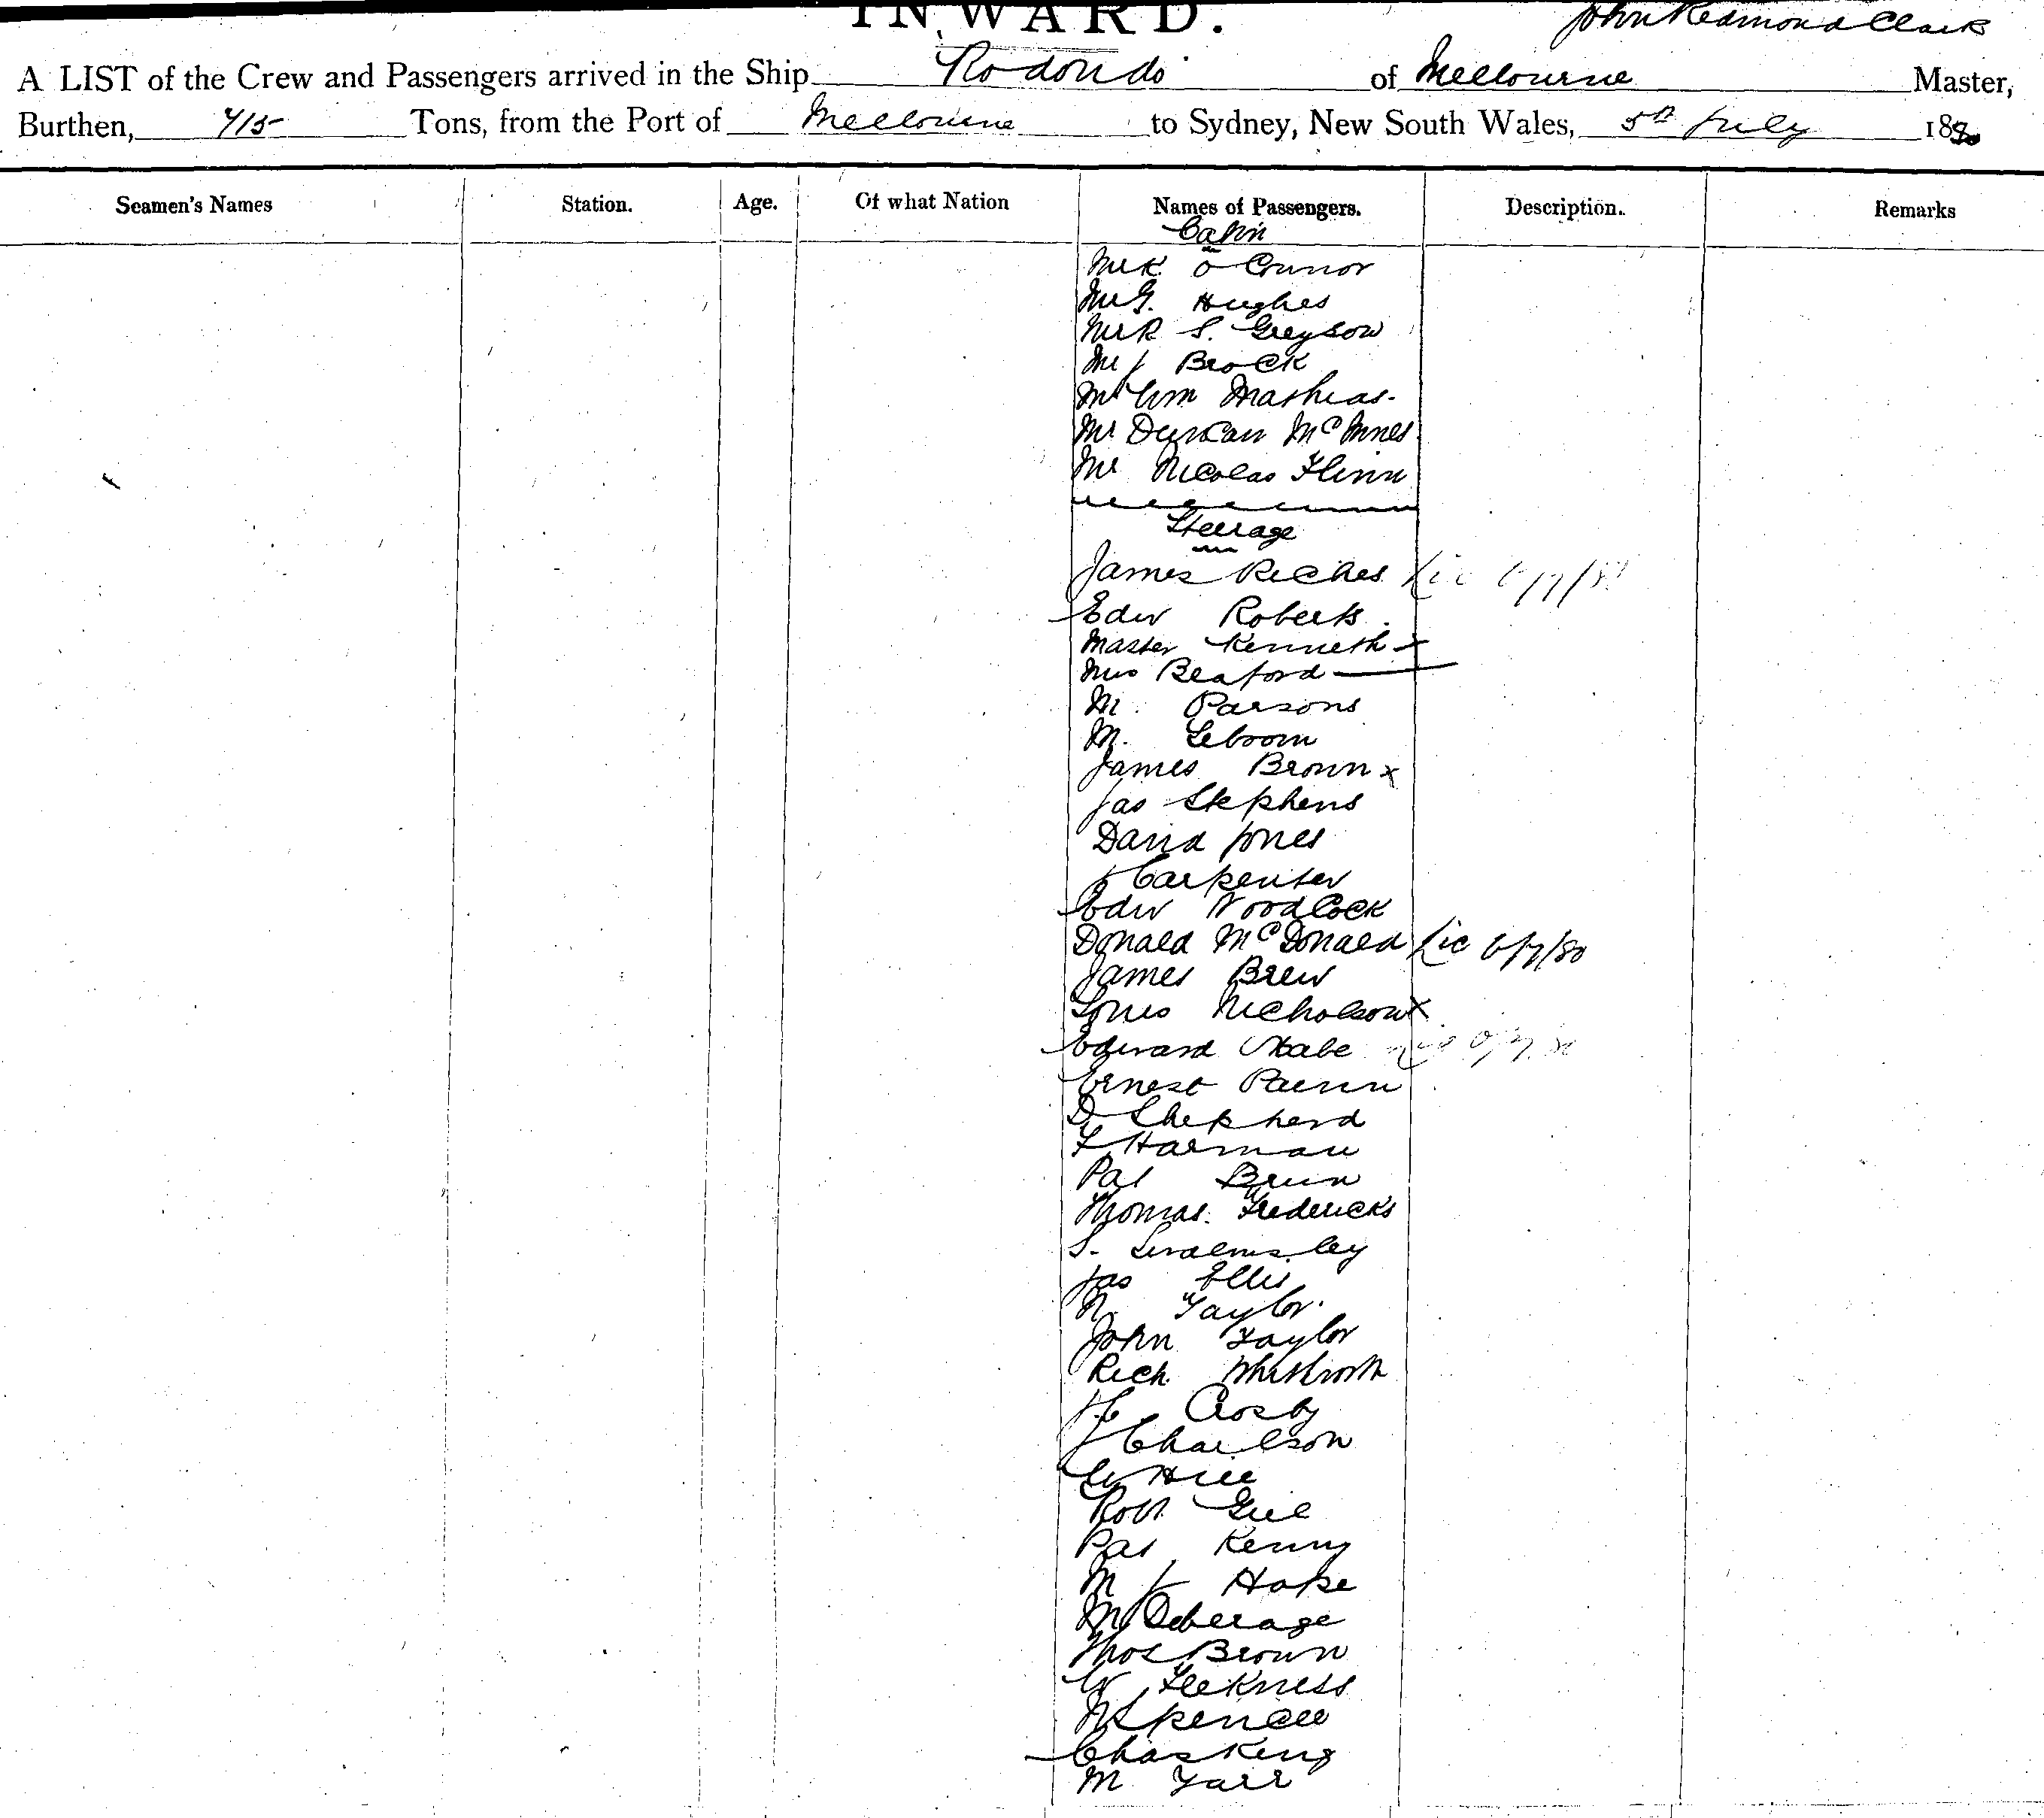 INWARD.
John Redmond Clark
A LIST of the Crew and Passengers arrived in the Ship Rodondo of Melbourne Master,
Burthen, 715 Tons, from the Port of Melbourne to Sydney, New South Wales, 5th July 1880
Seamen's Names Station. Age. Of what Nation Names of Passengers. Description. Remarks
Cabin
Mr K. O Connor
Mr G. Hughes
Mr R S. Greyson
Mr J Brock
Mr Wm Mathias.
Mr Duncan McInnes
Mr Nicolas Flinn
Steerage
James Riches Lic 6/7/80
Edw Roberts
Master Kenneth
Mrs Beaford
M. Parsons
M. Leboom
James Brown x
Jas Stephens
David Jones
J Carpenter
Edw Woodcock
Donald McDonald Lic 6/7/80
James Brew
Louis Nicholson x
Edward
Ernest
D Shepherd
F Harman
Pat
Thomas. Fredericks
S.
Jas Ellis
N. Taylor.
John Taylor
Rich Whitworth
Crosby
J Charlson
Hill
Robt Gill
Pat Kenny
M J Hope
M
Thos Brown
W Flekness
Spence
Chas King
M Yarr